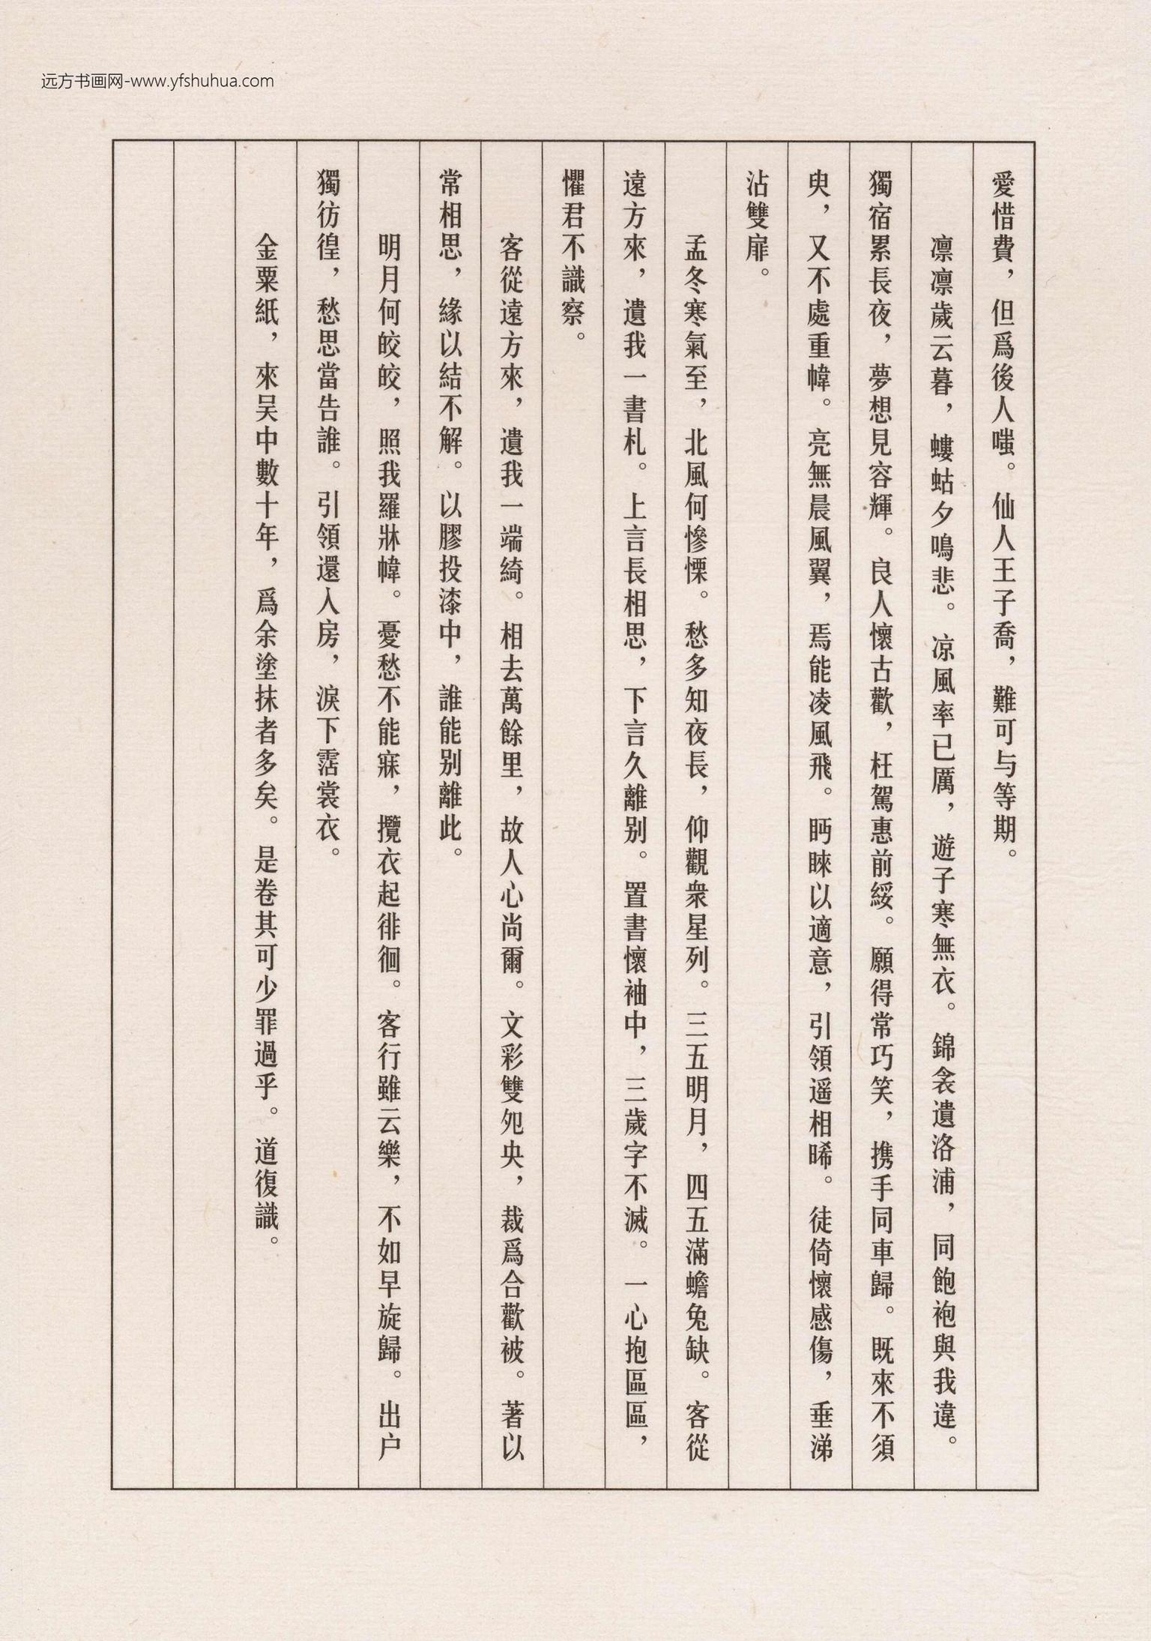 远方书画网-www.yfshuhua.com
愛惜費，但爲後人嗤。仙人王子喬，難可与等期。
凛凛歲云暮，螻蛄夕鳴悲。凉風率已厲，遊子寒無衣。錦衾遺洛浦，同飽袍與我違。
獨宿累長夜，夢想見容輝。良人懷古歡，枉駕惠前綏。願得常巧笑，携手同車歸。既來不須
臾，又不處重幃。亮無晨風翼，焉能凌風飛。眄睞以適意，引領遥相晞。徒倚懷感傷，垂涕
沾雙扉。
孟冬寒氣至，北風何慘慄。愁多知夜長，仰觀衆星列。三五明月，四五滿蟾兔缺。客從
遠方來，遺我一書札。上言長相思，下言久離别。置書懷袖中，三歲字不滅。一心抱區區，
懼君不識察。
客從遠方來，遺我一端綺。相去萬餘里，故人心尚爾。文彩雙夗央，裁爲合歡被。著以
常相思，緣以結不解。以膠投漆中，誰能别離此。
明月何皎皎，照我羅牀幃。憂愁不能寐，攬衣起徘徊。客行雖云樂，不如早旋歸。出户
獨彷徨，愁思當告誰。引領還入房，淚下霑裳衣。
金粟紙，來吴中數十年，爲余塗抹者多矣。是卷其可少罪過乎。道復識。